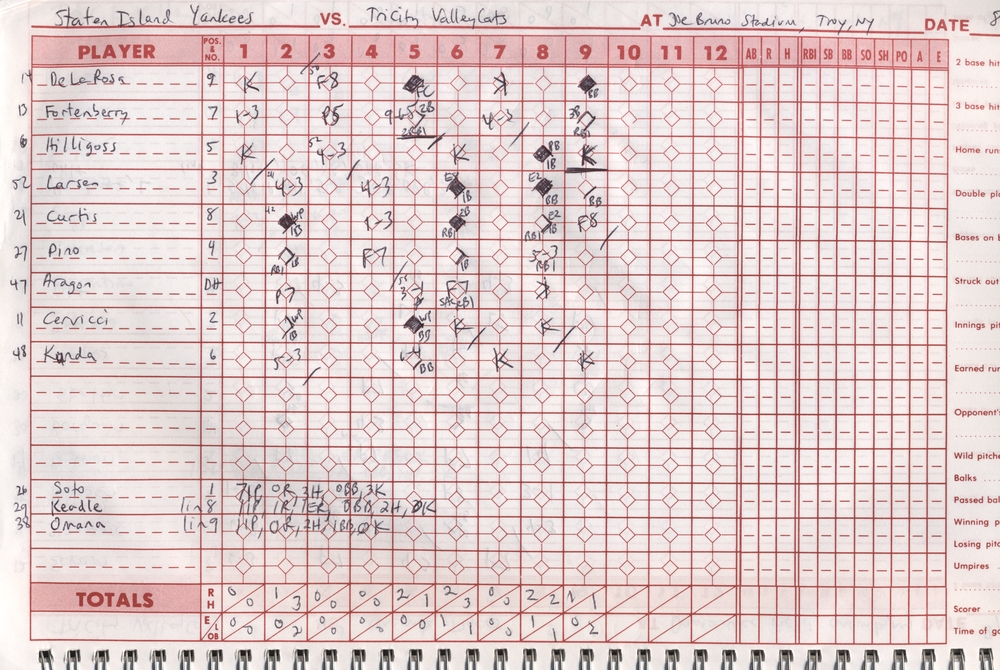 Staten Island Yankees VS. TriCity ValleyCats AT Joe Bruno Stadium, Troy, NY DATE 8
PLAYER POS. & NO. 1 2 3 4 5 6 7 8 9 10 11 12 AB R H RBI SB BB SO SH PO A E
2 base hit
14 De La Rosa 9 K F8 FC K BB
3 base hit
13 Fortenberry 7 1-3 P5 2B 2RBI 4-3 3B RBI
Home run
6 Hilligoss 5 K 4-3 K 1B K
52 Larsen 3 4-3 4-3 1B E2 BB BB
Double pl
21 Curtis 8 WP 1-3 2B RBI E2 1B RBI F8
Bases on b
27 Pino 4 RBI 1B F7 1B 5-3 RBI
47 Aragon DH P7 F7 SAC RBI
Struck out
11 Cervicci 2 WP BB WP BB K K
Innings pit
48 Kanda 6 5-3 BB K K
Earned run
Opponent's
Wild pitche
Balks
26 Soto 1 7IP, 0R, 3H, 0BB, 3K
29 Keadle 1 in 8 1IP, 1R, 1ER, 0BB, 2H, 0K
Passed bal
38 Omana 1 in 9 1IP, 0R, 2H, 1BB, 0K
Winning p
Losing pitc
Umpires
TOTALS R H 0 0 1 3 0 0 0 0 2 1 2 3 0 0 2 2 1 1
Scorer
E LOB 0 0 0 2 0 0 0 0 0 0 1 1 0 0 1 1 0 2
Time of ga